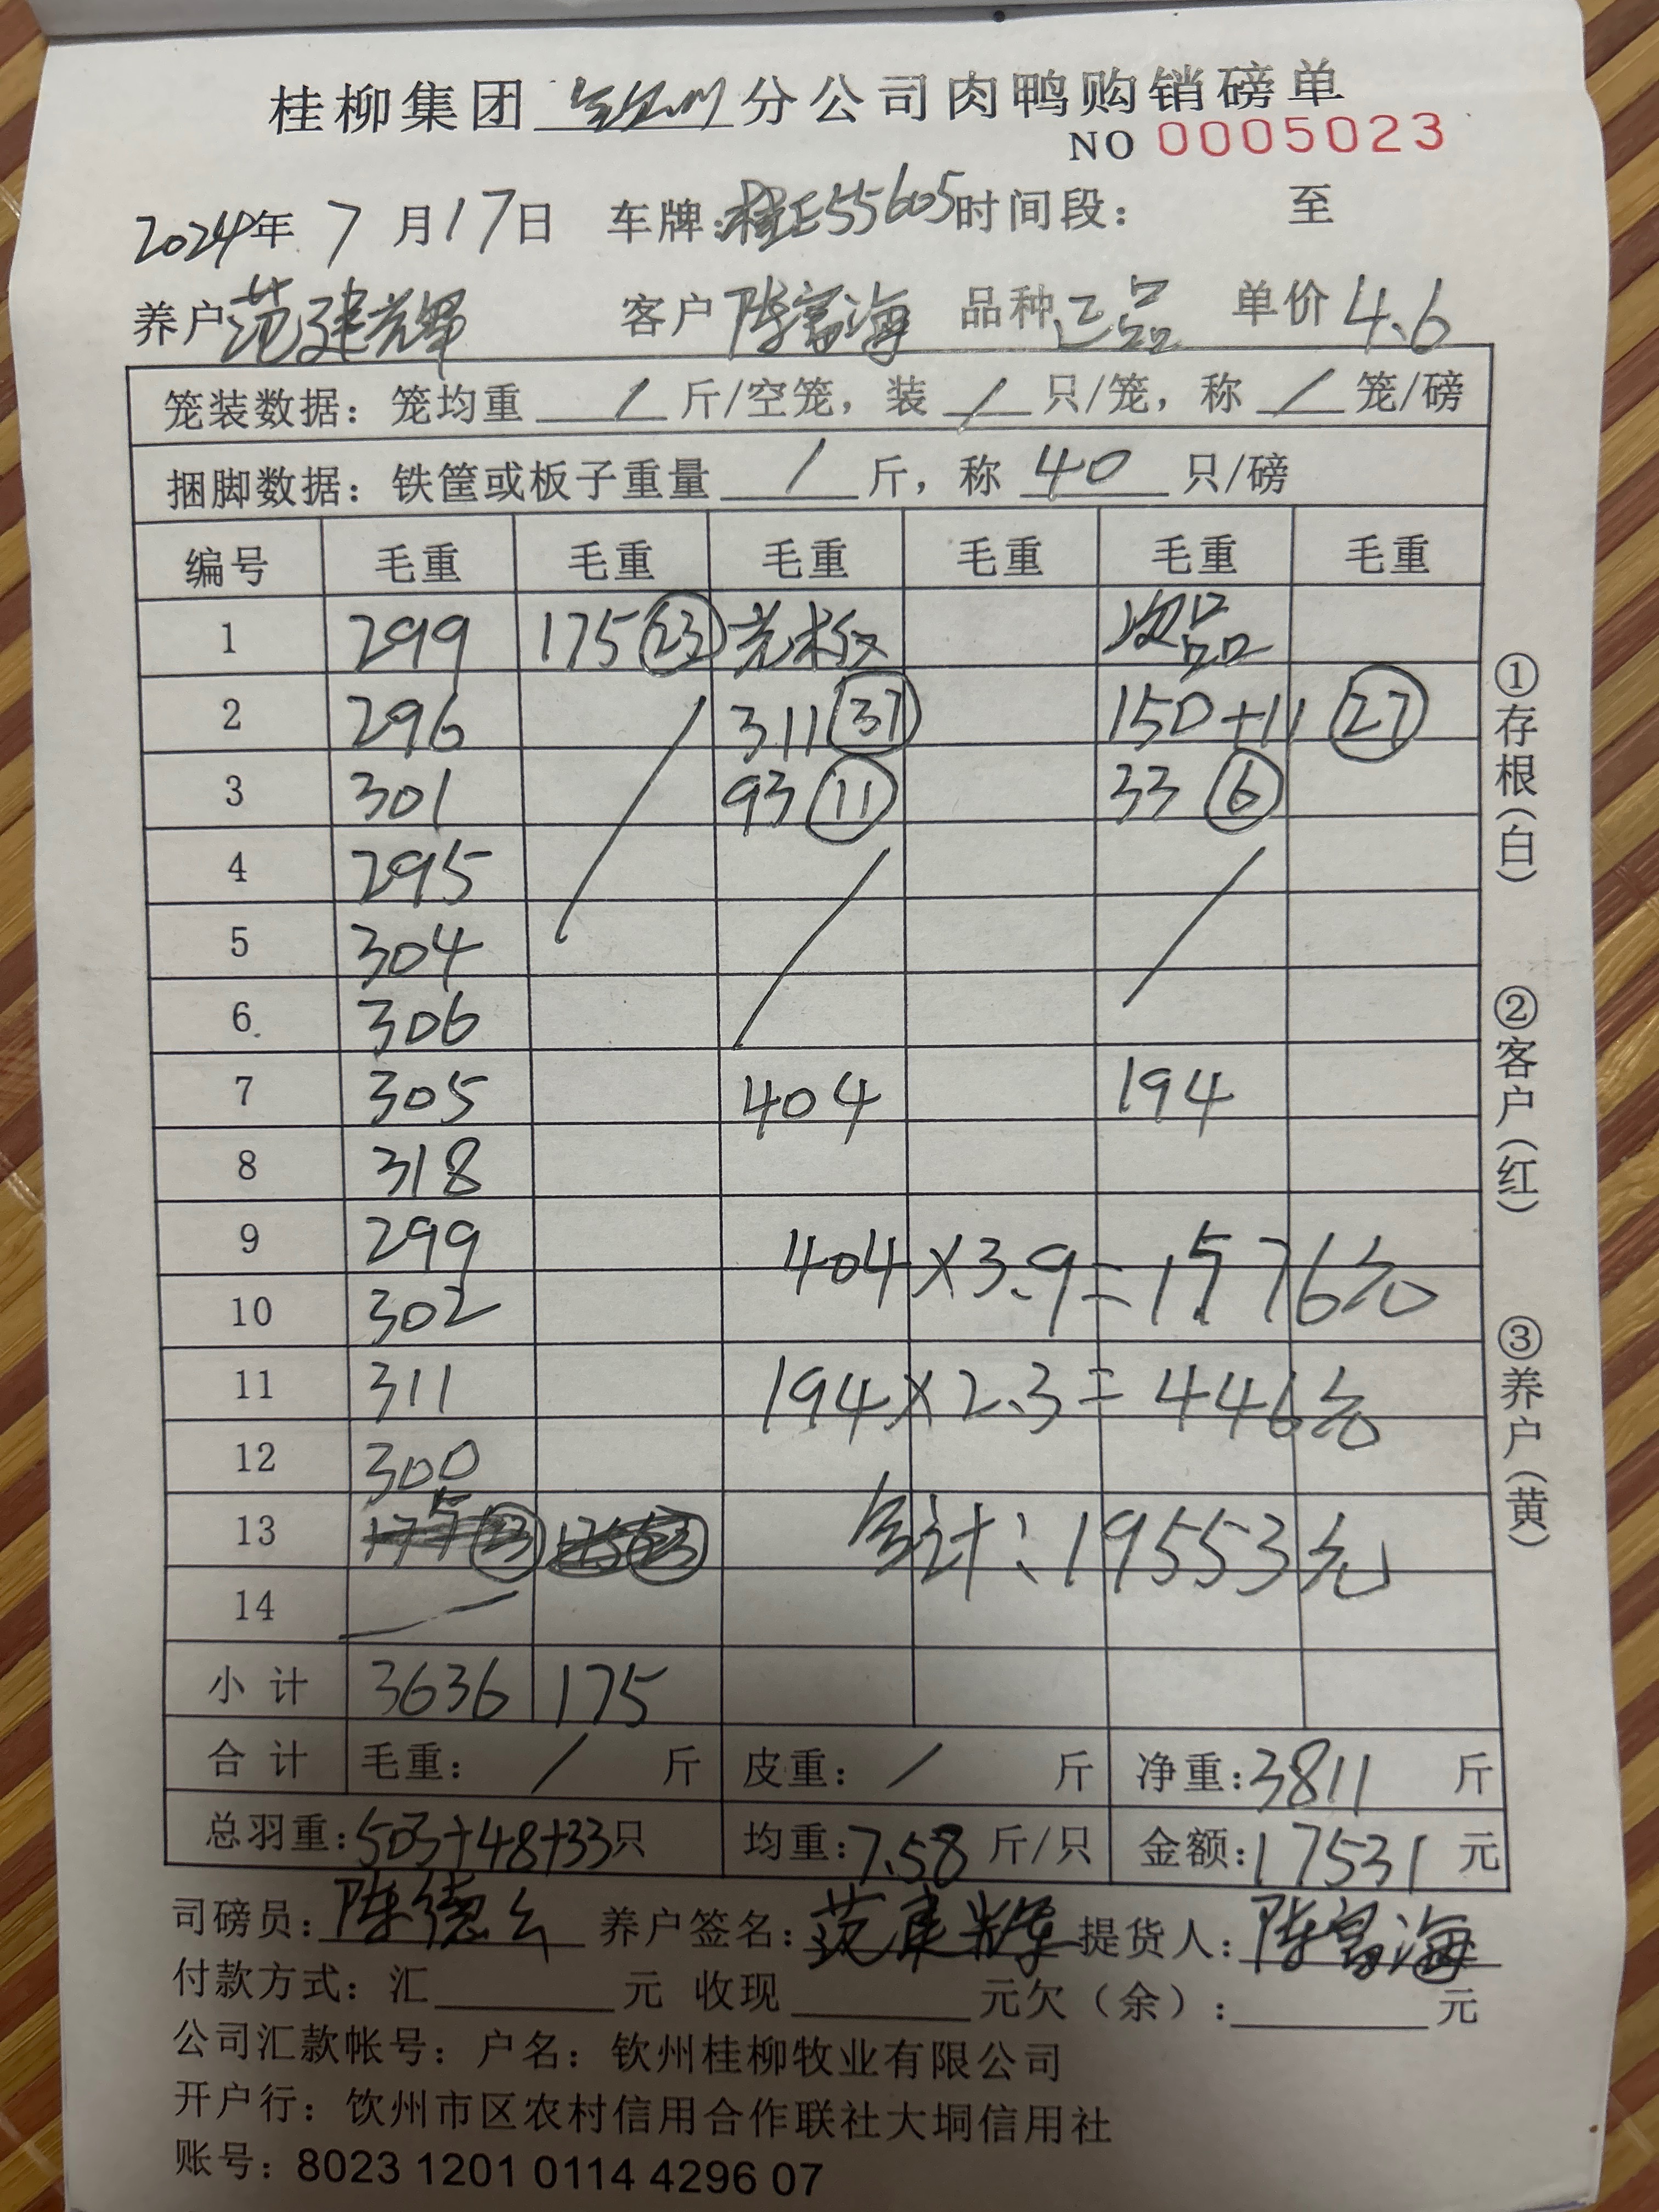 桂柳集团钦州分公司肉鸭购销磅单
NO 0005023
2024年 7 月17日 车牌:桂E55605时间段: 至
养户范建辉 客户陈富海 品种正品 单价4.6
笼装数据: 笼均重 / 斤/空笼, 装 / 只/笼, 称 / 笼/磅
捆脚数据: 铁筐或板子重量 / 斤, 称 40 只/磅
编号 毛重 毛重 毛重 毛重 毛重 毛重
1 299 175 23 光板 次品
2 296 311 37 150+11 27
3 301 93 11 33 6
4 295
5 304
6 306
7 305 404 194
8 318
9 299 404×3.9=1576元
10 302
11 311 194×2.3=446元
12 300
13 合计:19553元
14
小计 3636 175
合计 毛重: / 斤 皮重: / 斤 净重:3811 斤
总羽重:503+48+33只 均重:7.58 斤/只 金额:17531 元
司磅员: 陈德 养户签名: 范建辉 提货人: 陈富海
付款方式: 汇 元 收现 元欠(余): 元
公司汇款帐号: 户名: 钦州桂柳牧业有限公司
开户行: 钦州市区农村信用合作联社大垌信用社
账号: 8023 1201 0114 4296 07
①存根(白)
②客户(红)
③养户(黄)